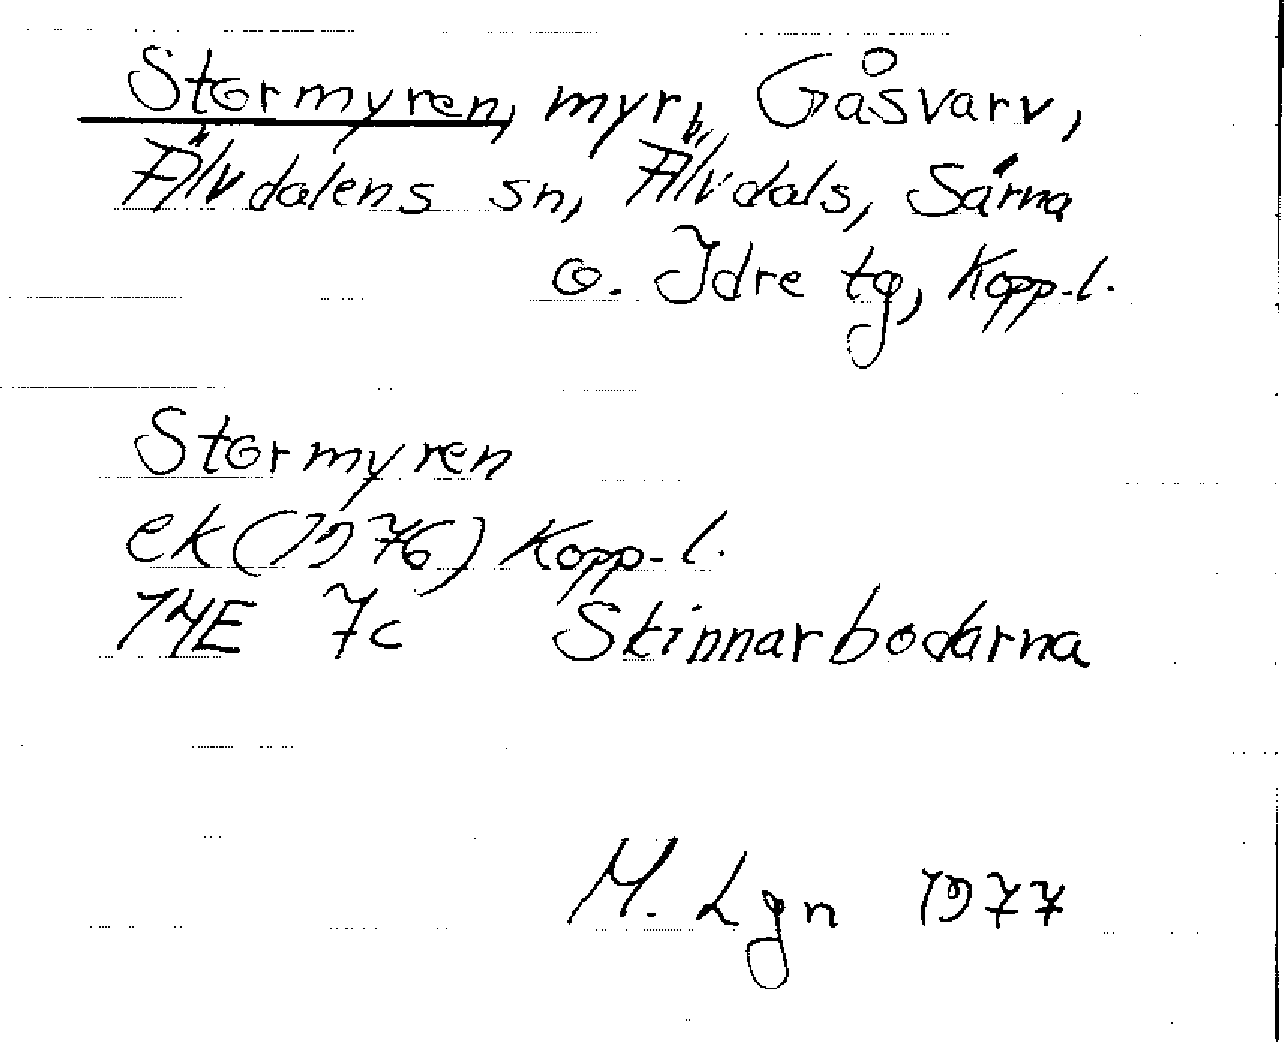 Stormyren, myr, Gåsvarv,
Älvdalens sn, Älvdals, Särna
o. Idre tg, Kopp-l.
Stormyren
ek (1976) Kopp-l.
14E 7c Skinnarbodarna
M. Lgn 1977